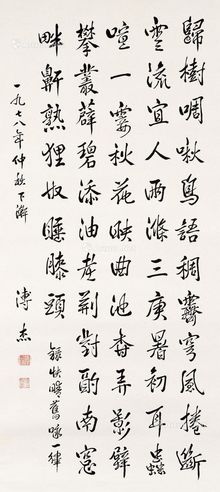 歸樹啁啾鳥語稠霽穹風捲斷
雲流宜人雨滌三庚暑初耳蟲
喧一霎秋花映曲池香弄影壁
攀叢薜碧添油老荊對酌南窗
畔鼾熟狸奴睡膝頭
錄快晴舊詠一律
一九七八年仲秋下澣
溥杰